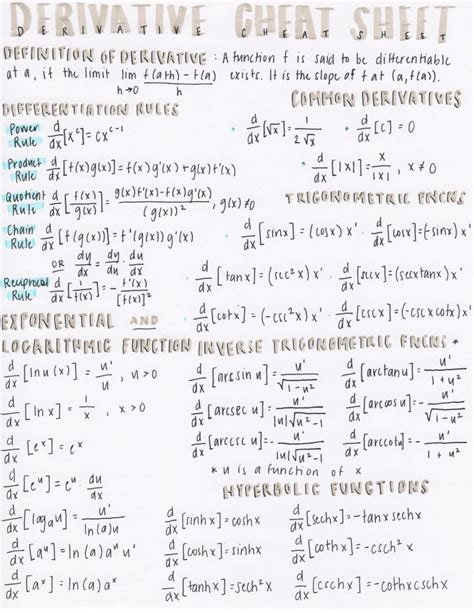 DERIVATIVE CHEAT SHEET
DERIVATIVE CHEAT SHEET
DEFINITION OF DERIVATIVE : A function f is said to be differentiable
at a, if the limit lim h→0 f(a+h) - f(a) / h exists. It is the slope of f at (a, f(a)).
DIFFERENTIATION RULES
Power Rule d/dx [x^c] = cx^(c-1)
Product Rule d/dx [f(x)g(x)] = f(x)g'(x) + g(x)f'(x)
Quotient Rule d/dx [f(x)/g(x)] = g(x)f'(x) - f(x)g'(x) / (g(x))^2 , g(x) ≠ 0
Chain Rule d/dx [f(g(x))] = f'(g(x)) g'(x)
OR dy/dx = dy/du · du/dx
Reciprocal Rule d/dx [1/f(x)] = - f'(x) / [f(x)]^2
COMMON DERIVATIVES
d/dx [√x] = 1 / 2√x
d/dx [c] = 0
d/dx [|x|] = x/|x| , x ≠ 0
TRIGONOMETRIC FNCNS
d/dx [sinx] = (cosx) x'
d/dx [cosx] = (-sinx) x'
d/dx [tanx] = (sec²x) x'
d/dx [secx] = (secxtanx) x'
d/dx [cotx] = (-csc²x) x'
d/dx [cscx] = (-cscxcotx) x'
EXPONENTIAL AND
LOGARITHMIC FUNCTION
d/dx [ln u(x)] = u'/u , u > 0
d/dx [lnx] = 1/x , x > 0
d/dx [e^x] = e^x
d/dx [e^u] = e^u · du/dx
d/dx [log_a u] = u' / ln(a)u
d/dx [a^u] = ln(a) a^u u'
d/dx [a^x] = ln(a) a^x
INVERSE TRIGONOMETRIC FNCNS *
d/dx [arcsin u] = u' / √(1-u²)
d/dx [arctanu] = u' / 1+u²
d/dx [arcsec u] = u' / |u|√(u²-1)
d/dx [arccosu] = - u' / √(1-u²)
d/dx [arccsc u] = u' / |u|√(u²-1)
d/dx [arccotu] = - u' / 1+u²
* u is a function of x
HYPERBOLIC FUNCTIONS
d/dx [sinhx] = coshx
d/dx [sechx] = -tanxsechx
d/dx [coshx] = sinhx
d/dx [cothx] = -csch²x
d/dx [tanhx] = sech²x
d/dx [cschx] = -cothxcschx